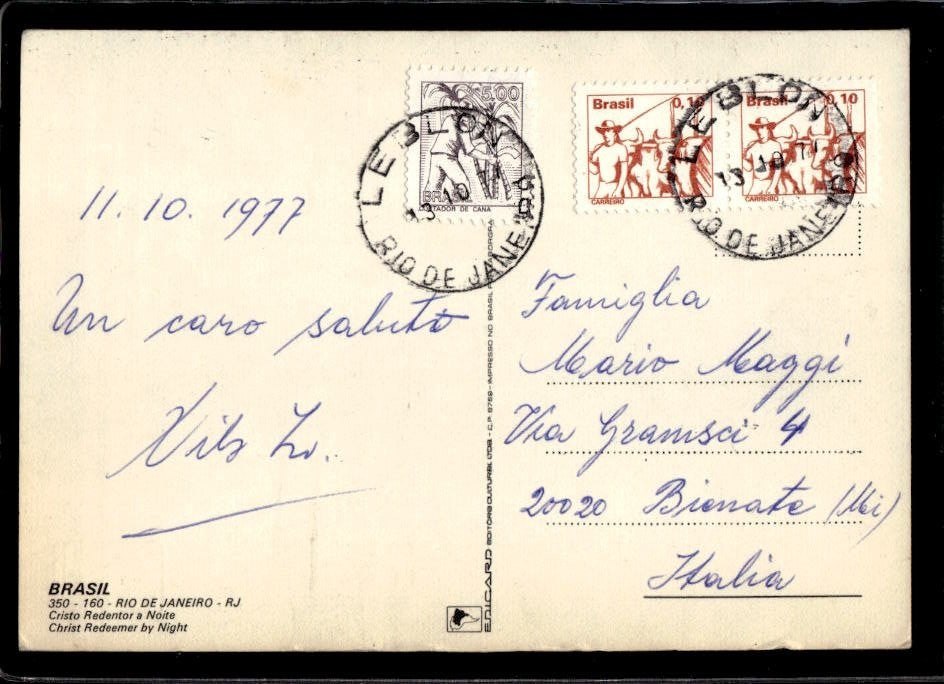 5,00
BRASIL
CORTADOR DE CANA
LEBLON
RIO DE JANEI
Brasil 0,10
CARREIRO
Brasil 0,10
CARREIRO
LEBLON
13 10 77
RIO DE JANEI
11.10.1977
Un caro saluto
Famiglia
Mario Maggi
Via Gramsci 4
20020 Bienate (Mi)
Italia
BRASIL
350 - 160 - RIO DE JANEIRO - RJ
Cristo Redentor a Noite
Christ Redeemer by Night
EDICARD EDITORA CULTURAL LTDA - C.P. 8759 - IMPRESSO NO BRASIL